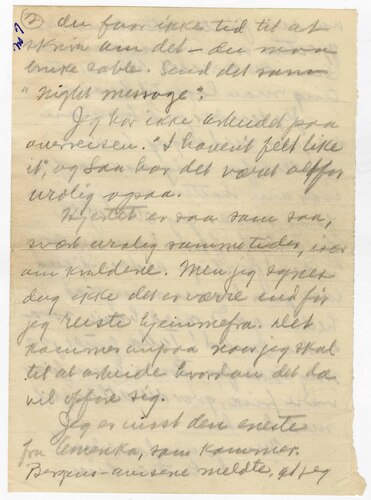 ② du faar ikke tid til at
No 7
skrive om det – du maa
bruke cable. Send det som
"Night message".
Jeg har ikke arbeidet paa
overreisen. "I haven't felt like
it", og saa har det været altfor
urolig ogsaa.
Hjertet er saa som saa,
svært urolig sommetider, især
om kveldene. Men jeg synes
dog ikke det er værre end før
jeg reiste hjemmefra. Det
kommer an paa naar jeg skal
til at arbeide hvordan det da
vil opføre sig.
Jeg er visst den eneste
fra Amerika, som kommer.
Bergens-aviserne meldte, at jeg